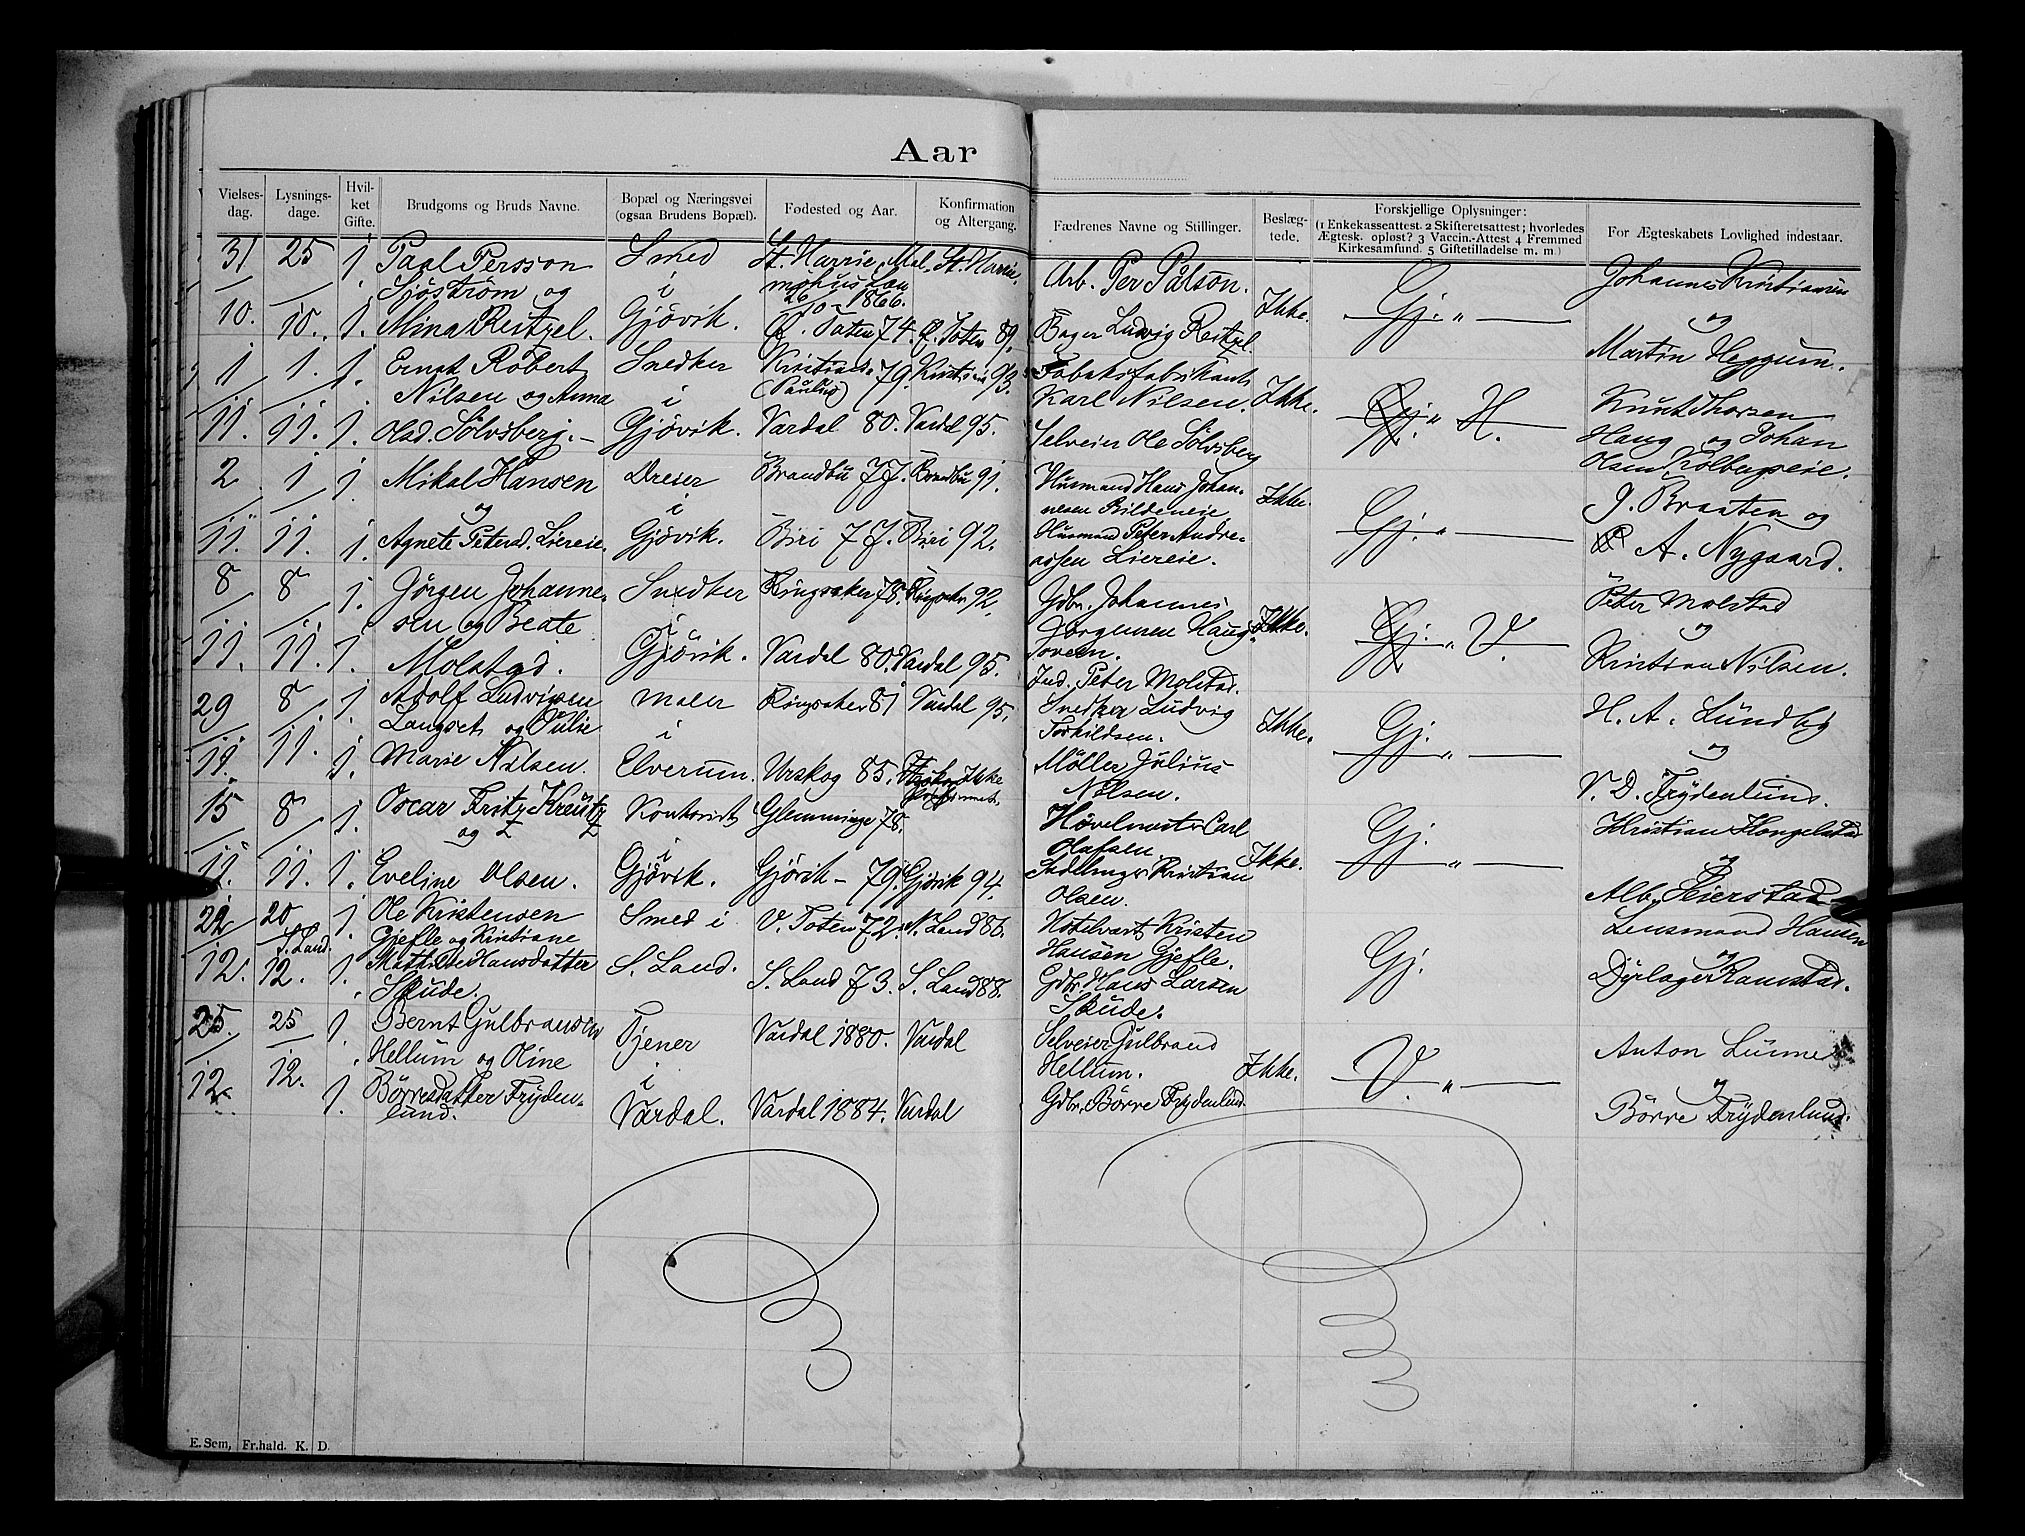 Aar
Vielses-dag. Lysnings-dage. Hvil-ket Gifte. Brudgoms og Bruds Navne. Bopæl og Næringsvei (ogsaa Brudens Bopæl). Fødested og Aar. Konfirmation og Altergang. Fædrenes Navne og Stillinger. Beslæg-tede. Forskjellige Oplysninger: (1 Enkekasseattest. 2 Skifteretsattest; hvorledes Ægtesk. opløst? 3 Vaccin.-Attest 4 Fremmed Kirkesamfund. 5 Giftetilladelse m. m.) For Ægteskabets Lovlighed indestaar.
31 25 1. Paal Persson Smed St. Harrie, Mal. St. Harrie. Arb. Per Pålson. Johannes Kristiansen
Sjöström og i möhus Län
26/10 - 1866. Ikke. Gj. " og
10. 10. 1. Mina Reitzel. Gjövik. Ø. Toten 74. Ø. Toten 89. Bager Ludvig Reitzel. Martin Heggum.
1 1. 1. Ernst Robert Snedker Kristiania 79. Kristiania 93. Tobaksfabrikant
Nilsen og Anna i (Paulus) Karl Nilsen. Ikke. Gj. " H. Knut Thorsen
11. 11. 1. Olsd. Sölvsberg. Gjövik. Vardal 80. Vardal 95. Selveier Ole Sölvsberg Haug og Johan
Olsen Kolbergseie.
2 1 1. Mikal Hansen Dreier Brandbu 77. Brandbu 91. Husmand Hans Johan-
og i nesen Bildeneie Ikke. Gj. " J. Braaten og
11. 11. 1. Agnete Petersd. Liereie. Gjövik. Biri 77. Biri 92. Husmand Peter Andre-
assen Liereie. A. Nygaard.
8 8 1. Jörgen Johanne- Snedker Ringsaker 78. Ringsaker 92. Gdbr. Johannes Peter Molstad
sen og Beate i Jörgensen Haug- Ikke. Gj. " V. og
11. 11. 1. Molstad. Gjövik. Vardal 80. Vardal 95. soveen. Kristian Nilsen.
Ind. Peter Molstad.
29 8 1. Adolf Ludvigsen Maler Ringsaker 81 Vardal 95. Snedker Ludvig H. A. Lundby
Langset og Julie i Torkildsen. Ikke. Gj. " og
11. 11. 1. Marie Nilsen. Elverum. Urskog 85. Ikke Möller Julius
Nilsen. V. D. Frydenlund.
15 8 1. Oscar Fritz Kreutz Kontorist Glemminge 78. Hövelmester Carl Kristian Kongelstad
og i Olafsen Ikke. Gj. " og
11. 11. 1. Eveline Olsen. Gjövik. Gjövik - 79. Gjövik 94. Sadelmager Kristian
Olsen. Alb. Beierstad
22 20 1. Ole Kristensen Smed i V. Toten 72. N. Land 86. Hotelvært Kristen Lensmand Hansen
S. Land. Gjefle og Kristiane Hansen Gjefle. Gj. og
12. 12. 1. Mathilde Hansdatter S. Land. S. Land 73. S. Land 88. Gdbr. Hans Larsen Dyrlæge Ramstad.
Skude. Skude.
25. 25 1. Bernt Gulbransen Tjener Vardal 1880. Vardal Selveier Gulbrand Anton Lunne
Hellum og Oline i Hellum. Ikke. V. " og
12. 12. 1. Börresdatter Fryden- Vardal. Vardal 1884. Vardal Gdbr. Börre Frydenlund. Börre Frydenlund.
lund.
E. Sem, Fr.hald. K. D.